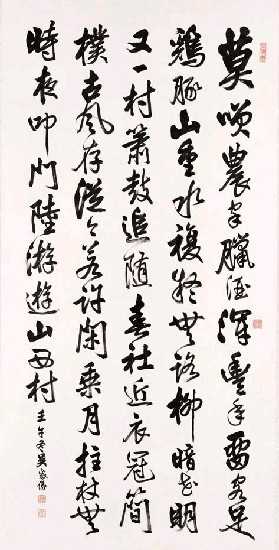 莫咲農家臘酒渾豐年留客足
鷄豚山重水複疑無路柳暗花明
又一村簫鼓追隨春社近衣冠簡
樸古風存從今若許閑乘月拄杖無
時夜叩門陸游遊山西村
壬午冬吳